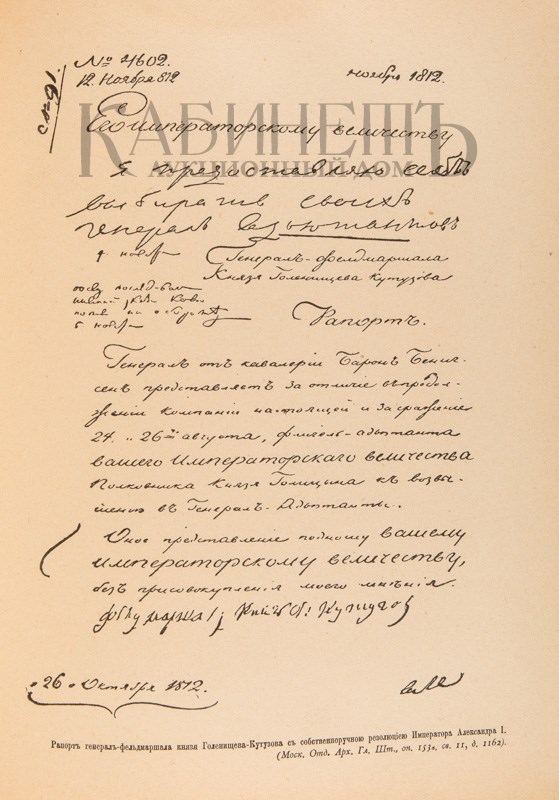 № 4602.
12. Ноября 812
ноября 1812.
КАБИНЕТЪ
АУКЦИОННЫЙ ДОМ
Его императорскому величеству
я предоставляю себѣ
выбирать своихъ
генералъ адъютантовъ
Генералъ-фельдмаршала
Князя Голенищева Кутузова
Рапортъ.
Генералъ отъ кавалеріи Баронъ Бениг-
сенъ представляетъ за отличіе въ продол-
женіи компаніи настоящей и за сраженіе
24. и 26го августа, флигель-адъютанта
вашего Императорскаго величества
Полковника Князя Голицына къ возвы-
шенію въ Генералъ-Адъютанты.
Оное представленіе подношу вашему
императорскому величеству,
безъ присовокупленія моего мнѣнія.
26 Октября 1812.
Рапортъ генералъ-фельдмаршала князя Голенищева-Кутузова съ собственноручною резолюціею Императора Александра I.
(Моск. Отд. Арх. Гл. Шт., оп. 153а, св. 11, д. 1162).